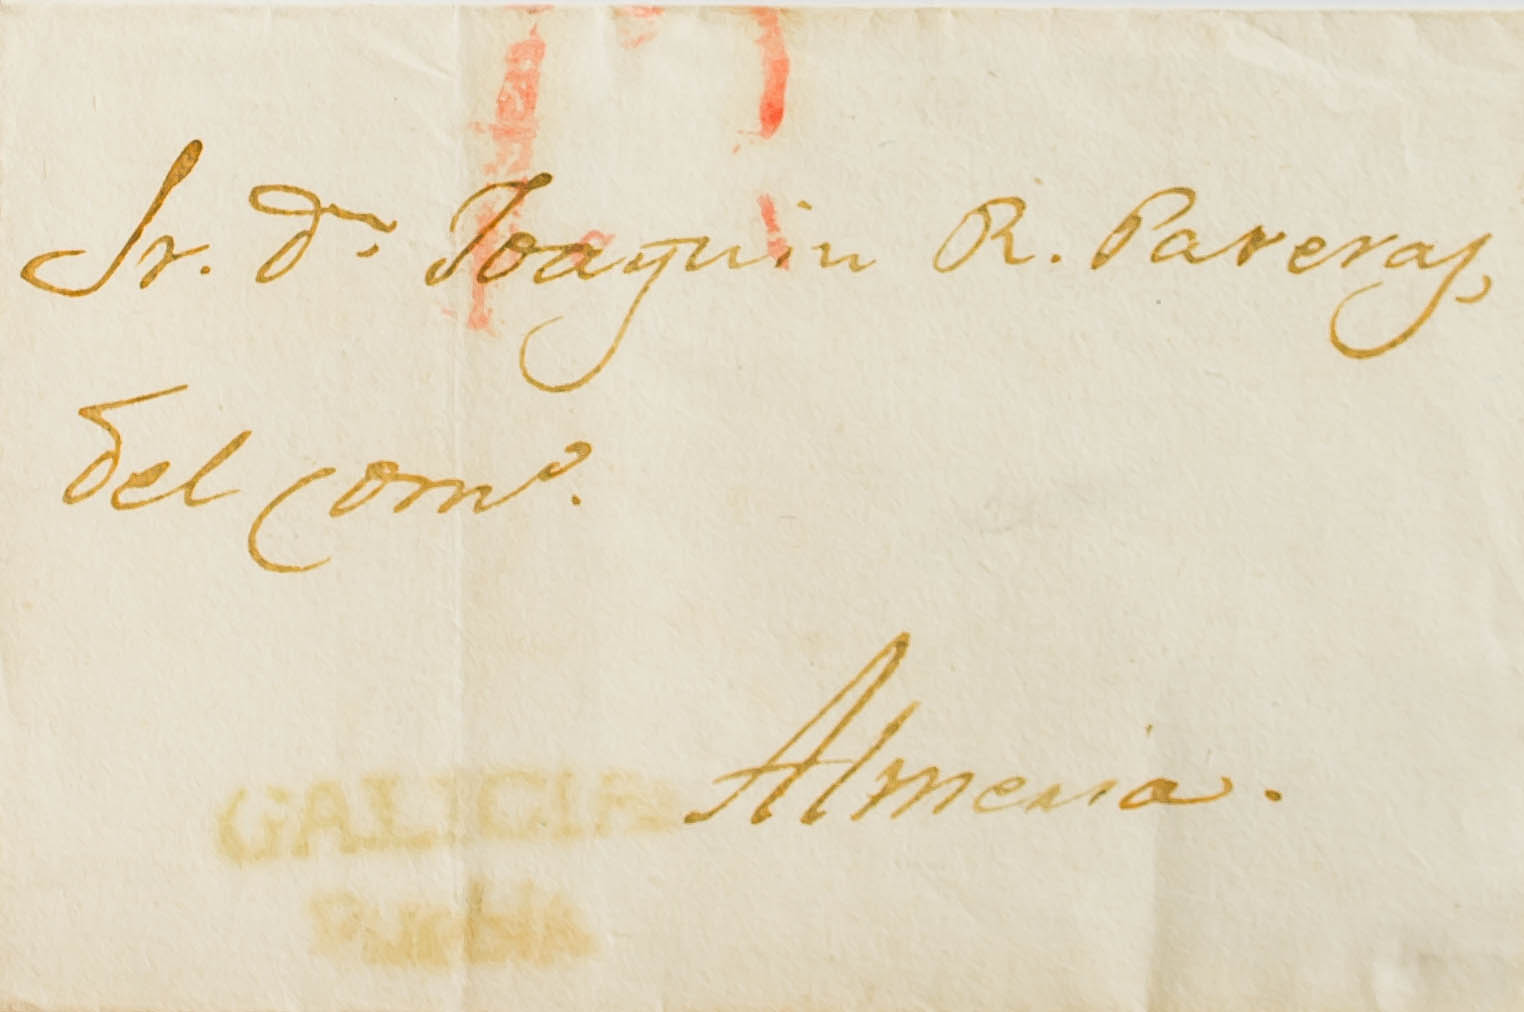 Sr. Dn. Joaquin R. Pareras,
del Como.
Almeria.
GALICIA
Puebla